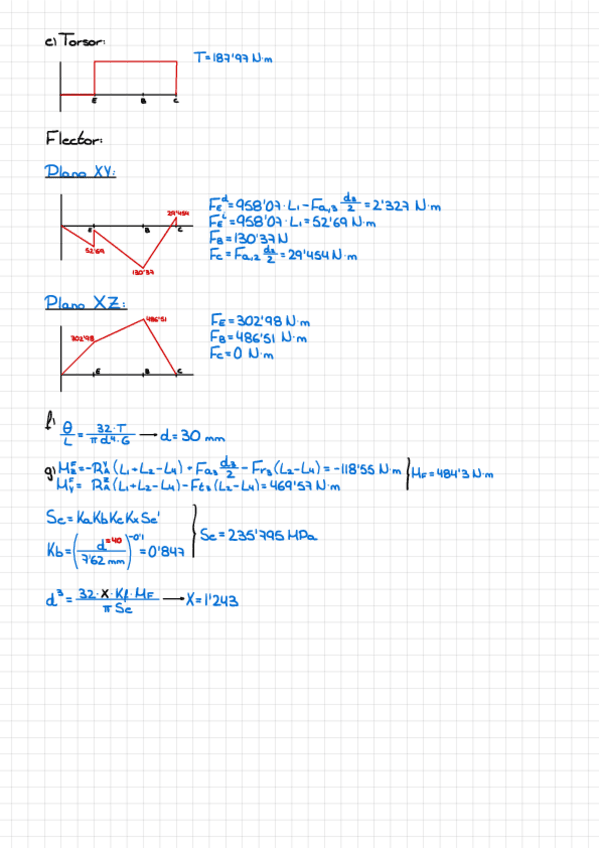 e) Torsor:
T=187'97 N·m
E B C
Flector:
Plano XY:
29'454
E B C
52'69
130'37
F_E^d=958'07·L₁-Fa,₃ d₃/2=2'327 N·m
F_E^i=958'07·L₁=52'69 N·m
F_B=130'37N
F_C=Fa,₂ d₂/2=29'454 N·m
Plano XZ:
486'51
302'98
E B C
F_E=302'98 N·m
F_B=486'51 N·m
F_C=0 N·m
f)
θ/L=32·T/πd⁴·G → d=30 mm
g) M_z^F=-R_A^Y(L₁+L₂-L₄)+Fa₃ d₃/2-Fr₃(L₂-L₄)=-118'55 N·m
M_Y^F= R_A^Z(L₁+L₂-L₄)-Ft₃(L₂-L₄)=469'57 N·m
M_F=484'3 N·m
Se=KaKbKcKxSe'
Kb=(d=40/7'62 mm)^-0'1=0'847
Se=235'795 MPa
d³=32·X·Kf·M_F/πSe → X=1'243